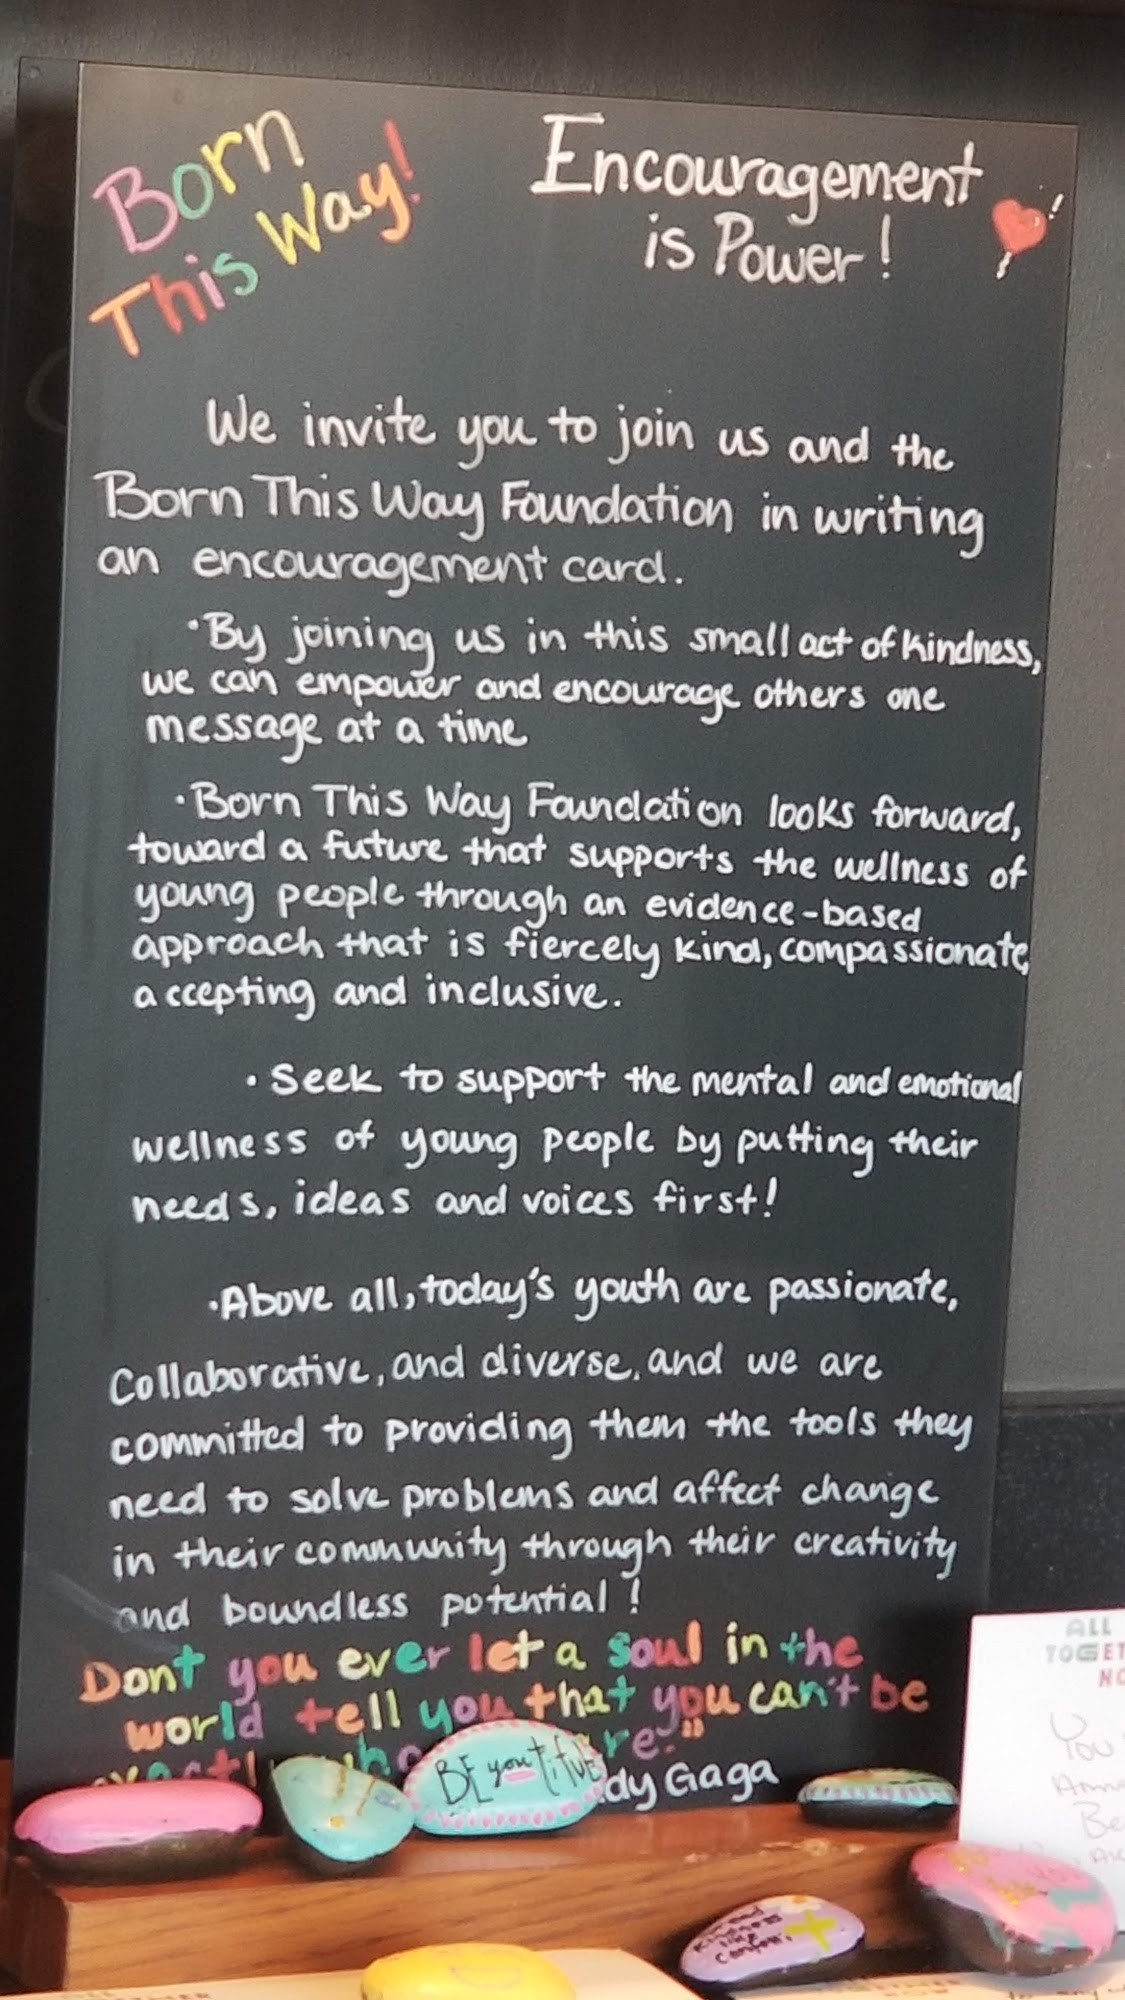 Born
This Way!
Encouragement
is Power!
We invite you to join us and the
Born This Way Foundation in writing
an encouragement card.
·By joining us in this small act of kindness,
we can empower and encourage others one
message at a time
·Born This Way Foundation looks forward,
toward a future that supports the wellness of
young people through an evidence-based
approach that is fiercely kind, compassionate,
accepting and inclusive.
·Seek to support the mental and emotional
wellness of young people by putting their
needs, ideas and voices first!
·Above all, today's youth are passionate,
Collaborative, and diverse, and we are
committed to providing them the tools they
need to solve problems and affect change
in their community through their creativity
and boundless potential!
Dont you ever let a soul in the
world tell you that you can't be
re."
dy Gaga
BE you tifuL
Kindness
like
Confetti
ALL
TOGET
NO
You